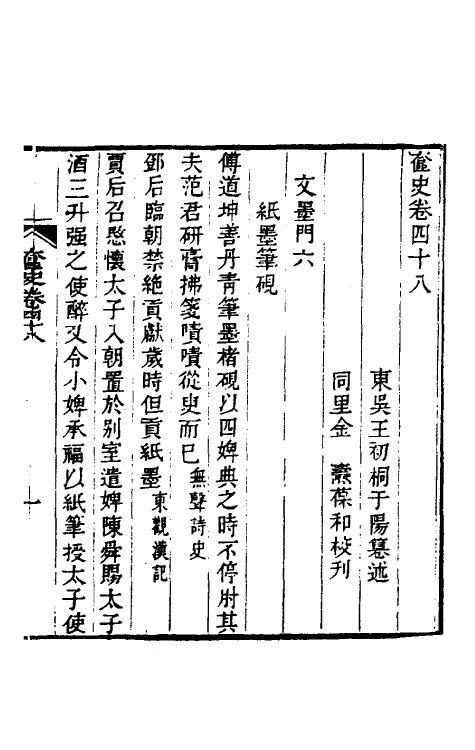 奩史卷四十八
東吳王初桐于陽纂述
同里金 熹葆和校刊
文墨門六
紙墨筆硯
傅道坤善丹青筆墨楮硯以四婢典之時不停肘其
夫范君研膏拂箋嘖嘖從史而已無聲詩史
鄧后臨朝禁絶貢獻歲時但貢紙墨東觀漢記
賈后召愍懷太子入朝置於别室遣婢陳舜賜太子
酒三升强之使醉又令小婢承福以紙筆授太子使
奩史卷四十八
一